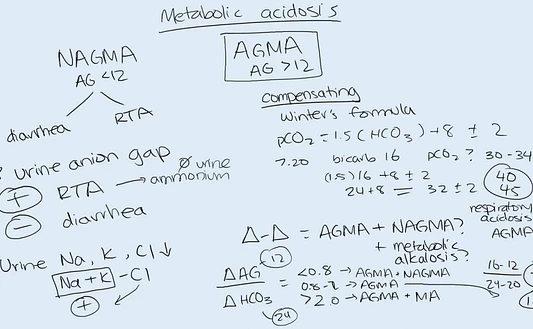 Metabolic acidosis
NAGMA
AG <12
diarrhea
RTA
AGMA
AG >12
compensating
Winter's formula
pCO2 = 1.5(HCO3) + 8 ± 2
7.20 bicarb 16 pCO2? 30-34
(1.5)16 + 8 ± 2
24+8 = 32 ± 2
40
45
respiratory
acidosis
AGMA
? urine anion gap
+ RTA → ∅ urine
ammonium
− diarrhea
Urine Na, K, Cl ↓
Na + K - Cl
+
Δ-Δ = AGMA + NAGMA?
+ metabolic
alkalosis?
12
ΔAG
ΔHCO3
24
= <0.8 → AGMA + NAGMA
0.8-2 → AGMA
>2.0 → AGMA + MA
16-12
24-20